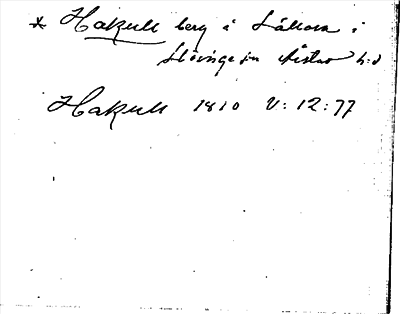 * Hakull berg i Låkom i
Slöinge sn Årstad h:d
Hakull 1810 V: 12: 77